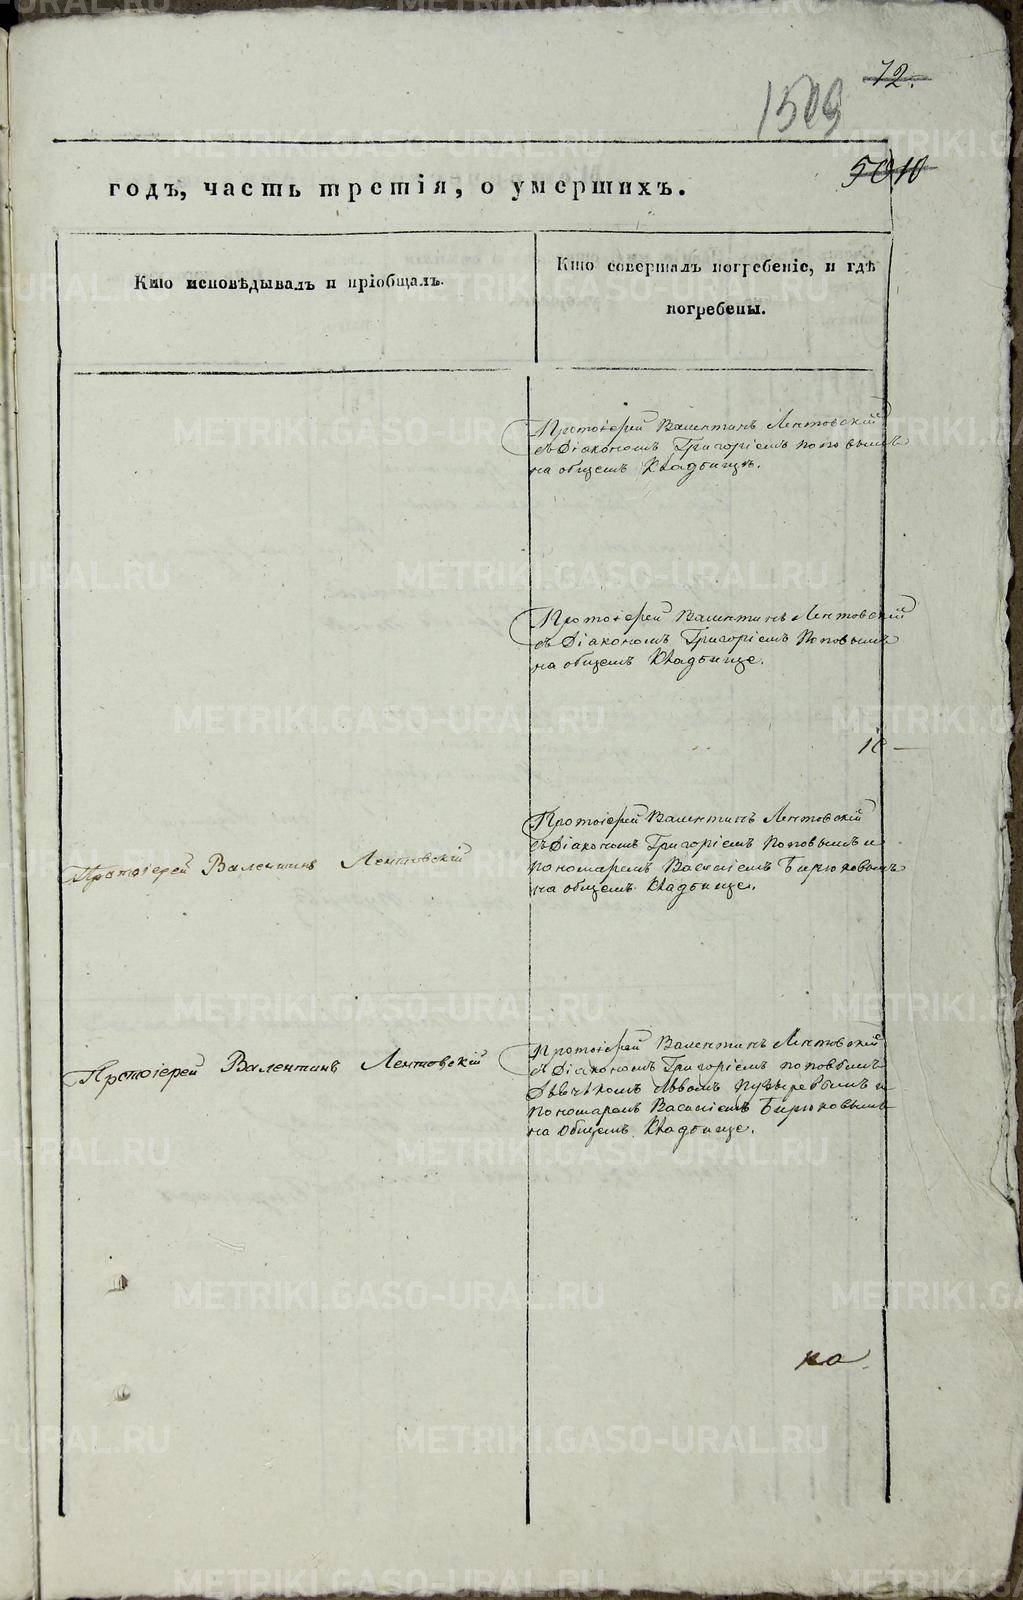 72.
1509
5010
годъ, часть третія, о умершихъ.
Кто исповѣдывалъ и пріобщалъ.
Кто совершалъ погребеніе, и гдѣ
погребены.
Протоіерей Валентинъ Лентовскій
съ Діакономъ Григоріемъ Поповымъ
на общемъ Кладбищѣ.
Протоіерей Валентинъ Лентовскій
съ Діакономъ Григоріемъ Поповымъ
на общемъ Кладбище.
Протоіерей Валентинъ Лентовскій
Протоіерей Валентинъ Лентовскій
съ Діакономъ Григоріемъ Поповымъ и
пономаремъ Василіемъ Бирюковымъ
на общемъ Кладбище.
Протоіерей Валентинъ Лентовскій
Протоіерей Валентинъ Лентовскій
съ Діакономъ Григоріемъ Поповымъ
Дьячкомъ Львомъ Пузыревымъ и
Пономаремъ Василіемъ Бирюковымъ
на Общемъ Кладбище.
METRIKI.GASO-URAL.RU